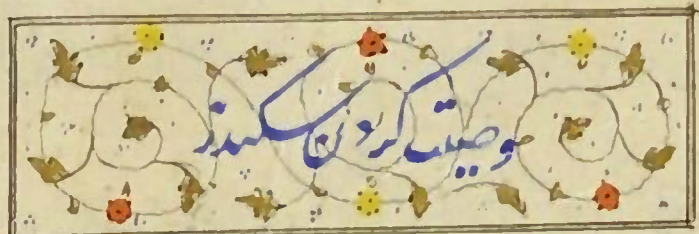 وصیت کردن سکندر